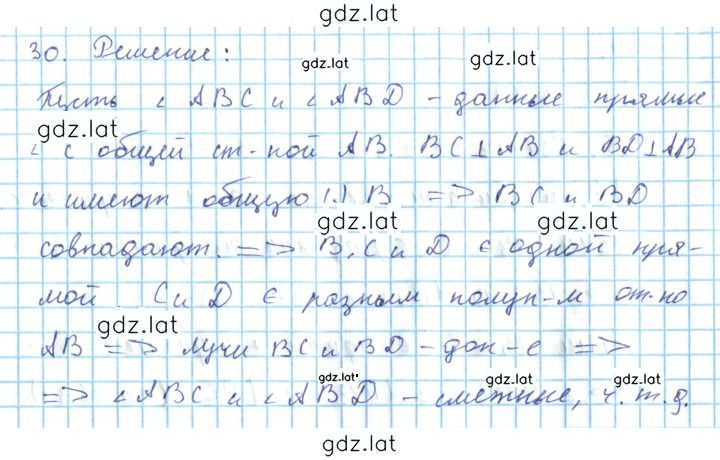 gdz.lat
30. Решение:
gdz.lat
gdz.lat
Пусть ∠ ABC и ∠ ABD - данные прямые
gdz.lat
∠ с общей ст-ной AB. BC⊥AB и BD⊥AB
и имеют общую (.) B => BC и BD
gdz.lat gdz.lat
совпадают. => B, C и D ∈ одной пря-
мой C и D ∈ разным полуп-м от-но
gdz.lat
AB => лучи BC и BD - доп-е =>
gdz.lat gdz.lat gdz.lat
=> ∠ ABC и ∠ ABD - смежные, ч.т.д.
gdz.lat